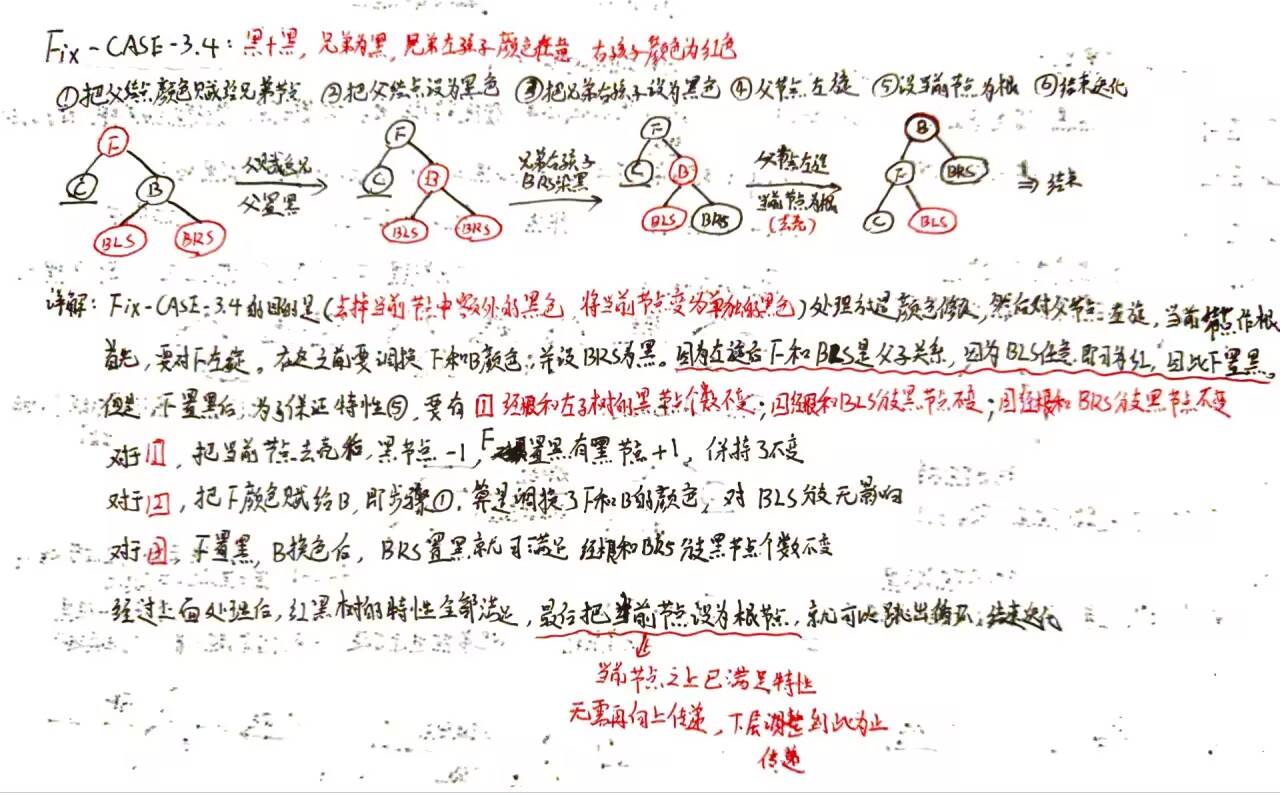 Fix-CASE-3.4：黑+黑，兄弟为黑，兄弟左孩子颜色任意，右孩子颜色为红色
①把父结点颜色赋给兄弟节点 ②把父结点设为黑色 ③把兄弟右孩子设为黑色 ④父节点左旋 ⑤设当前节点为根 ⑥结束迭代
F C B BLS BRS
父赋色兄
父置黑
F C B BLS BRS
兄弟右孩子
BRS染黑
F C B BLS BRS
父节点左旋
当前节点为根
(去壳)
B F BRS C BLS
⇒ 结束
详解：Fix-CASE-3.4的目的是(去掉当前节点中额外的黑色，将当前节点变为单独的黑色)处理方式是颜色修改，然后对父节点左旋，当前节点作根
首先，要对F左旋。在这之前要调换F和B颜色，并设BRS为黑。因为左旋后F和BLS是父子关系，因为BLS任意即可为红，因此F置黑。
但是，F置黑后，为了保证特性⑤，要有①经根和左子树的黑节点个数不变；②经根和BLS分支黑节点不变；③经根和BRS分支黑节点不变
对于①，把当前节点去壳后，黑节点-1，F置黑有黑节点+1，保持了不变
对于②，把F颜色赋给B，即步骤①，算是调换了F和B的颜色，对BLS分支无影响
对于③，F置黑，B换色后，BRS置黑就可满足 经根和BRS分支黑节点个数不变
经过上面处理后，红黑树的特性全部满足，最后把当前节点设为根节点，就可以跳出循环，结束迭代
当前节点之上已满足特性
无需再向上传递，下层调整到此为止
传递